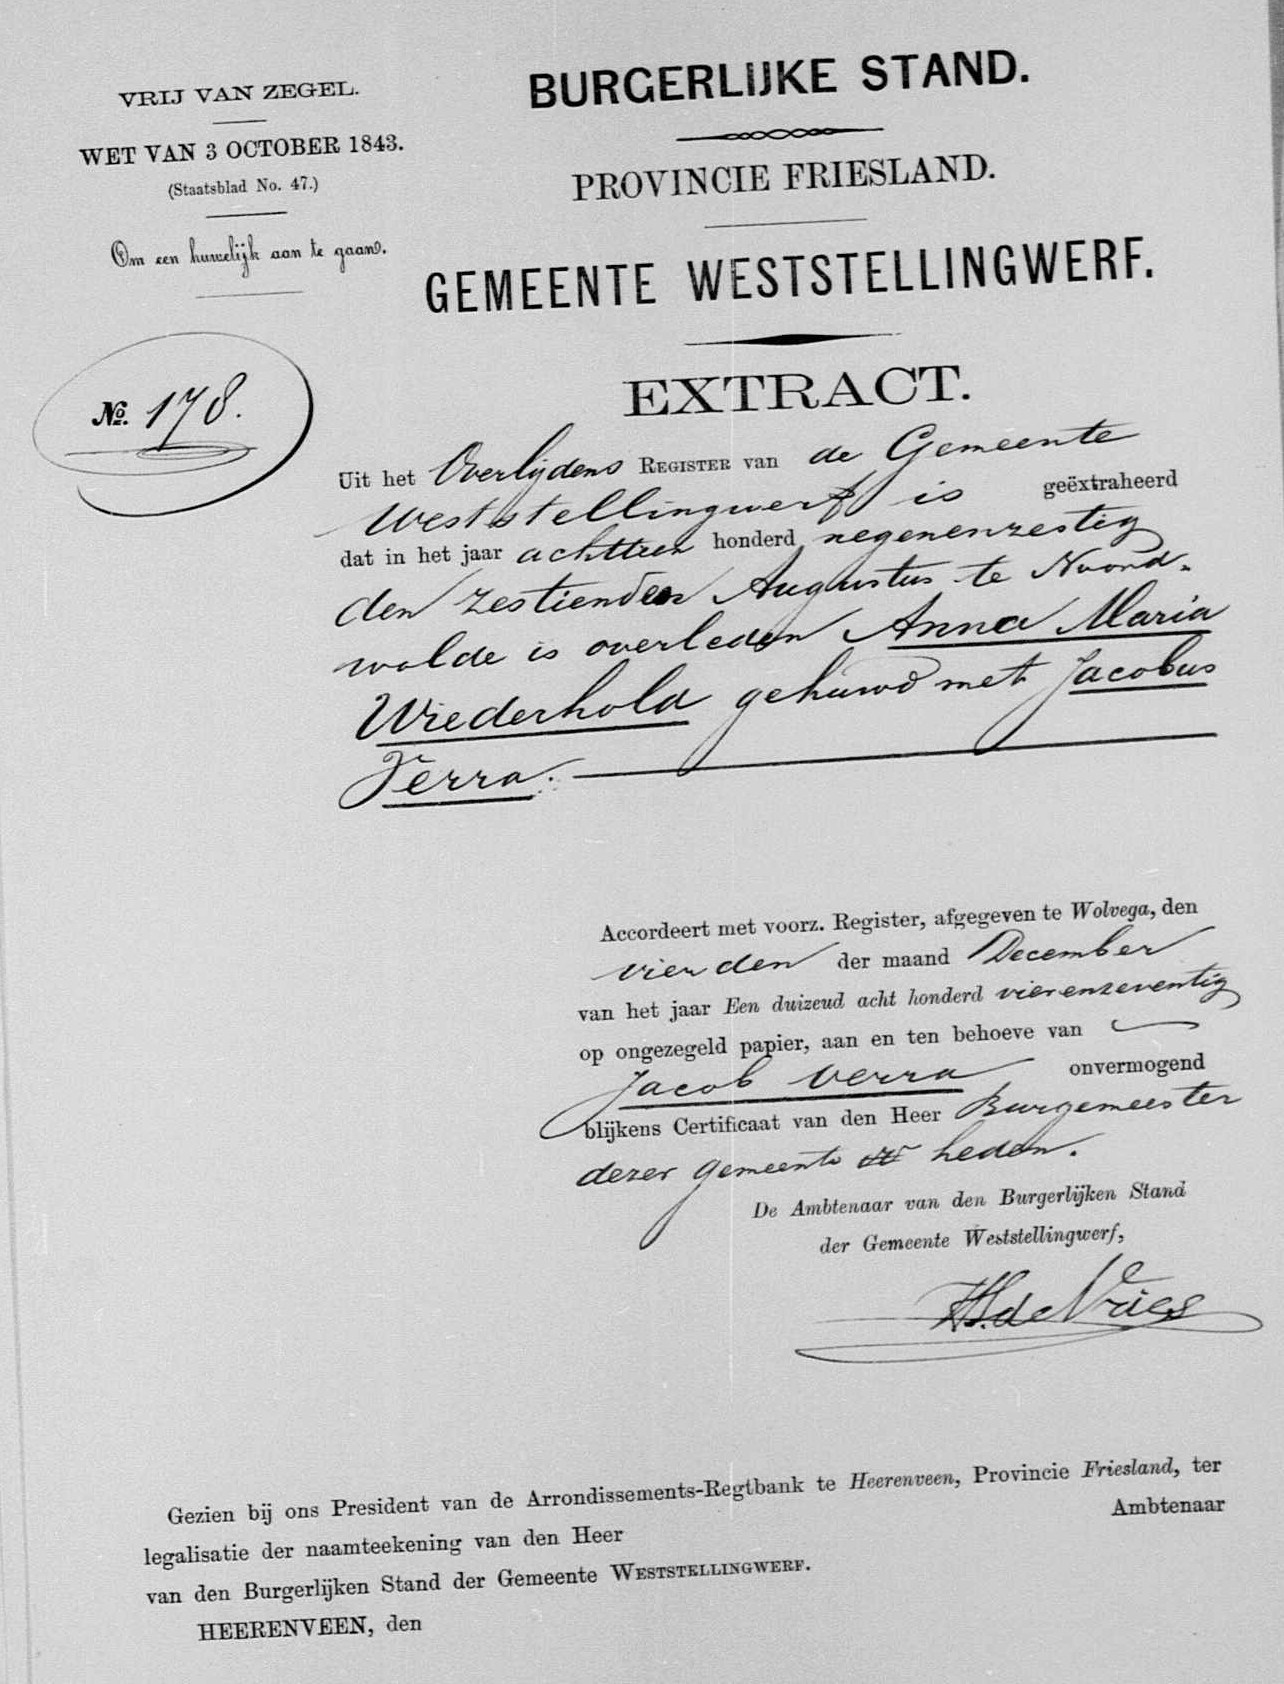 VRIJ VAN ZEGEL.
WET VAN 3 OCTOBER 1843.
(Staatsblad No. 47.)
Om een huwelijk aan te gaan.
No. 178.
BURGERLIJKE STAND.
PROVINCIE FRIESLAND.
GEMEENTE WESTSTELLINGWERF.
EXTRACT.
Uit het Overlijdens REGISTER van de Gemeente
Weststellingwerf is geëxtraheerd
dat in het jaar achttien honderd negenenzestig
den zestienden Augustus te Noord-
wolde is overleden Anna Maria
Wiederhold gehuwd met Jacobus
Ferra.
Accordeert met voorz. Register, afgegeven te Wolvega, den
vierden der maand December
van het jaar Een duizeud acht honderd vierenzeventig
op ongezegeld papier, aan en ten behoeve van
Jacob Verra onvermogend
blijkens Certificaat van den Heer Burgemeester
dezer gemeente heden.
De Ambtenaar van den Burgerlijken Stand
der Gemeente Weststellingwerf,
de Vries
Gezien bij ons President van de Arrondissements-Regtbank te Heerenveen, Provincie Friesland, ter
legalisatie der naamteekening van den Heer Ambtenaar
van den Burgerlijken Stand der Gemeente WESTSTELLINGWERF.
HEERENVEEN, den